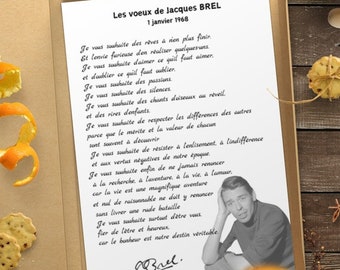 Les voeux de Jacques BREL
1 janvier 1968
Je vous souhaite des rêves à n'en plus finir.
Et l'envie furieuse d'en réaliser quelques-uns.
Je vous souhaite d'aimer ce qu'il faut aimer.
et d'oublier ce qu'il faut oublier.
Je vous souhaite des passions.
Je vous souhaite des silences.
Je vous souhaite des chants d'oiseaux au réveil.
et des rires d'enfants.
Je vous souhaite de respecter les différences des autres
parce que le mérite et la valeur de chacun
sont souvent à découvrir
Je vous souhaite de résister à l'enlisement, à l'indifférence
et aux vertus négatives de notre époque
Je vous souhaite enfin de ne jamais renoncer
à la recherche, à l'aventure, à la vie, à l'amour.
car la vie est une magnifique aventure
et nul de raisonnable ne doit y renoncer
sans livrer une rude bataille
Je vous souhaite surtout d'être vous.
fier de l'être et heureux.
car le bonheur est notre destin véritable.
Brel.